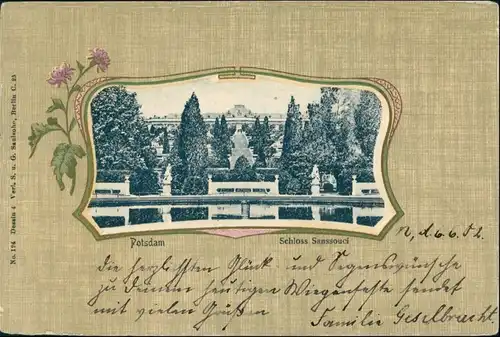 No. 174 Dessin 4 Verl. S. u. G. Saulsohn, Berlin C. 25
Potsdam
Schloss Sanssouci
d. 6.6.
die herzlichsten Glück- und Segenswünsche
zu Deinem heutigen Wiegenfeste sendet
mit vielen Grüßen
Familie Geselbracht